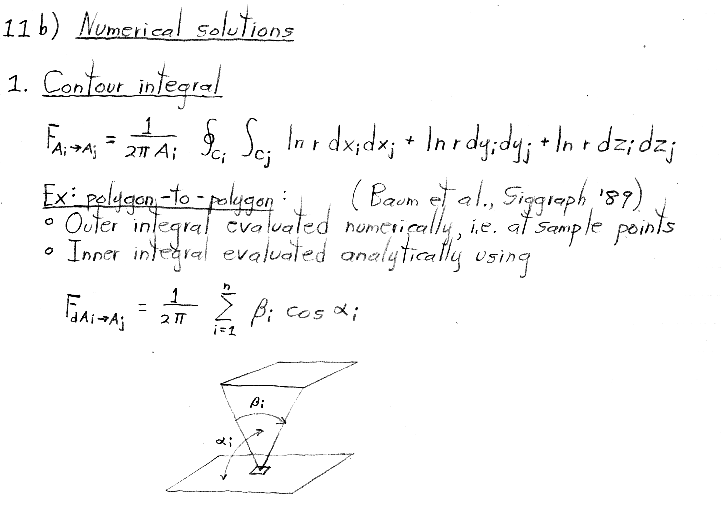 11 b) Numerical solutions
1. Contour integral
F_{Ai→Aj} = 1/(2π Ai) ∮_{Ci} ∫_{Cj} ln r dxi dxj + ln r dyi dyj + ln r dzi dzj
Ex: polygon-to-polygon: (Baum et al., Siggraph '89)
° Outer integral evaluated numerically, i.e. at sample points
° Inner integral evaluated analytically using
F_{dAi→Aj} = 1/(2π) Σ_{i=1}^{n} βi cos αi
βi
αi